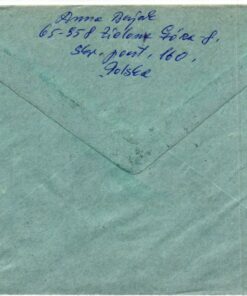 Anna
65-958 Zielona Góra 8.
Skr. poczt. 160.
Polska